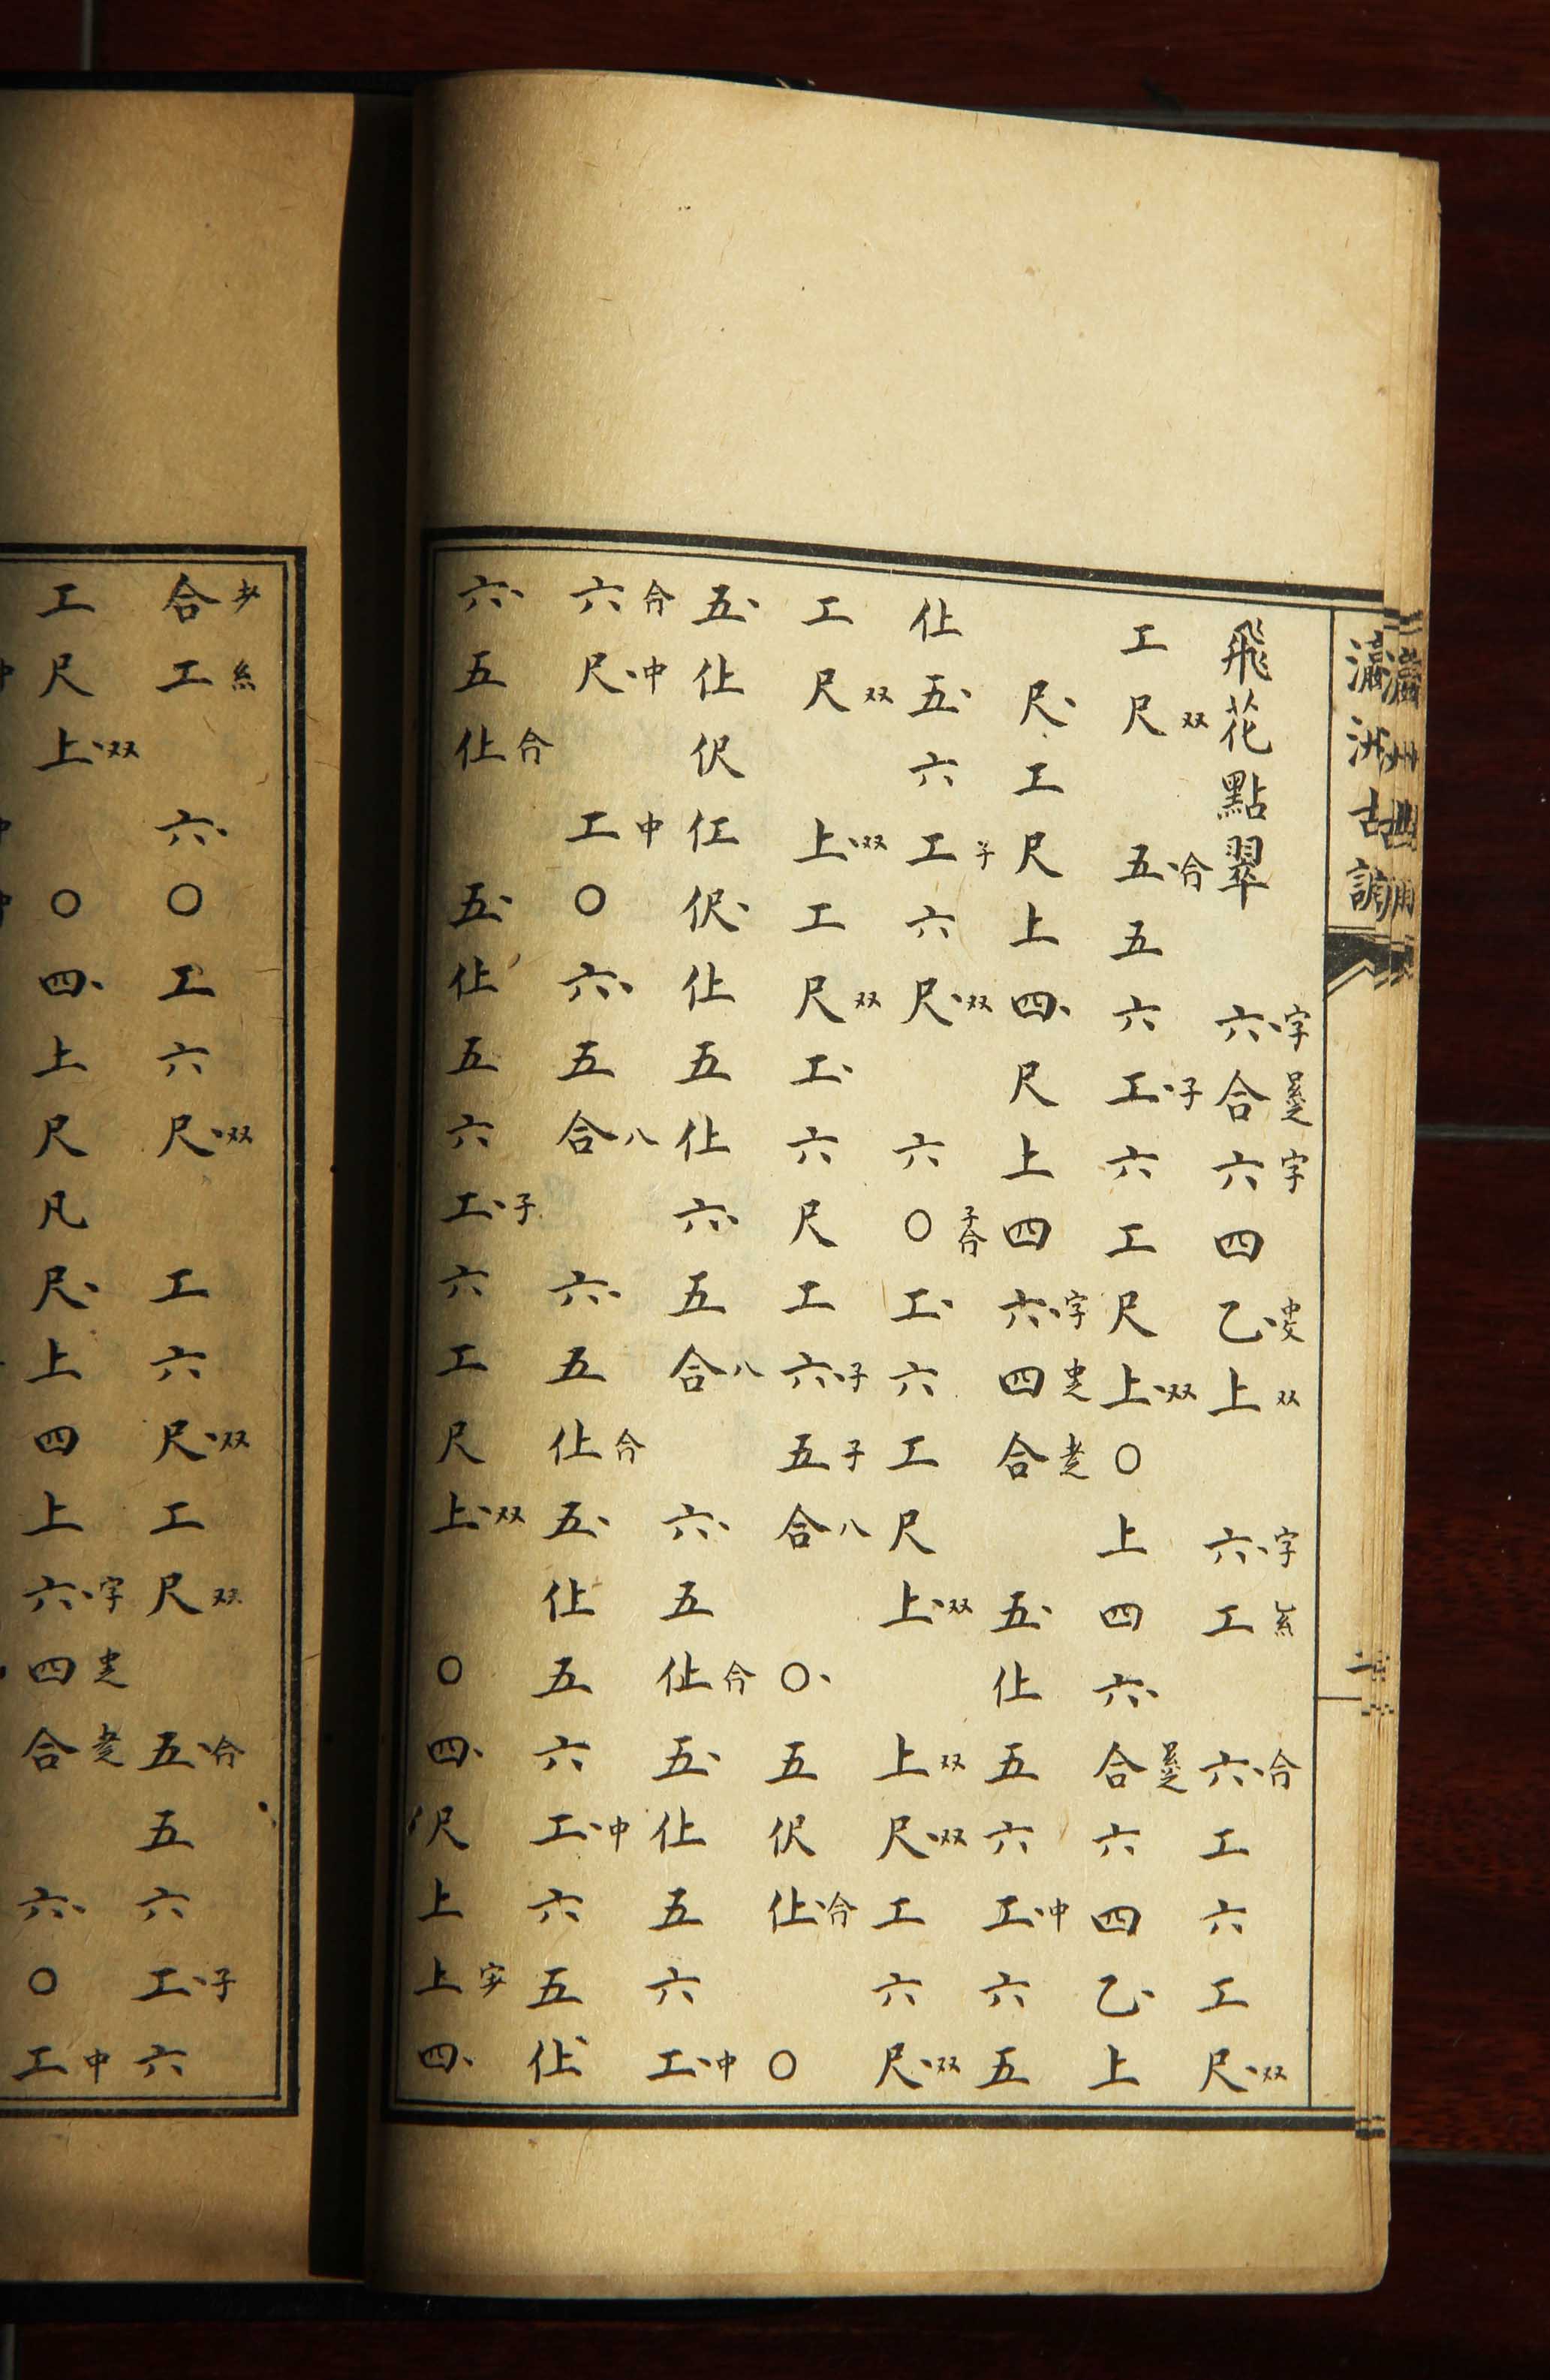 瀛洲古調
飛花點翠 六、字 合 六字 四 乙、 上双 六、字 工 六、合 工 六 工 尺、双
工 尺双 五、合 五 六 工、子 六 工 尺 上、双 〇 上 四 六、 合 六 四 乙、 上
尺、 工 尺 上 四、 尺 上 四 六、字 四 合 五、 仩 五 六 工、中 六 五
仩 五、 六 工子 六 尺、双 六 〇子合 工、 六 工 尺 上、双 上双 尺、双 工 六 尺、双
工 尺双 上、双 工 尺双 工、 六 尺 工 六、子 五子 合八 〇、 五 伬 仩、合 〇
五、 仩 伬 仜 伬、 仩 五 仩 六、 五 合八 六、 五 仩合 五、 仩 五 六 工、中
六合 尺、中 工中 〇 六、 五 合八 六、 五 仩合 五、 仩 五 六 工、中 六 五 仩、
六、 五 仩合 五、 仩 五 六 工、子 六 工 尺 上、双 〇 四、 伬 上 上字 四、
合 工 六、 〇 工 六 尺、双 工 六 尺、双 工 尺双 五、合 五 六 工、子 六
工 尺 上、双 〇 四、 上 尺 凡 尺、 上 四 上 六、字 四 合 六、 〇 工中